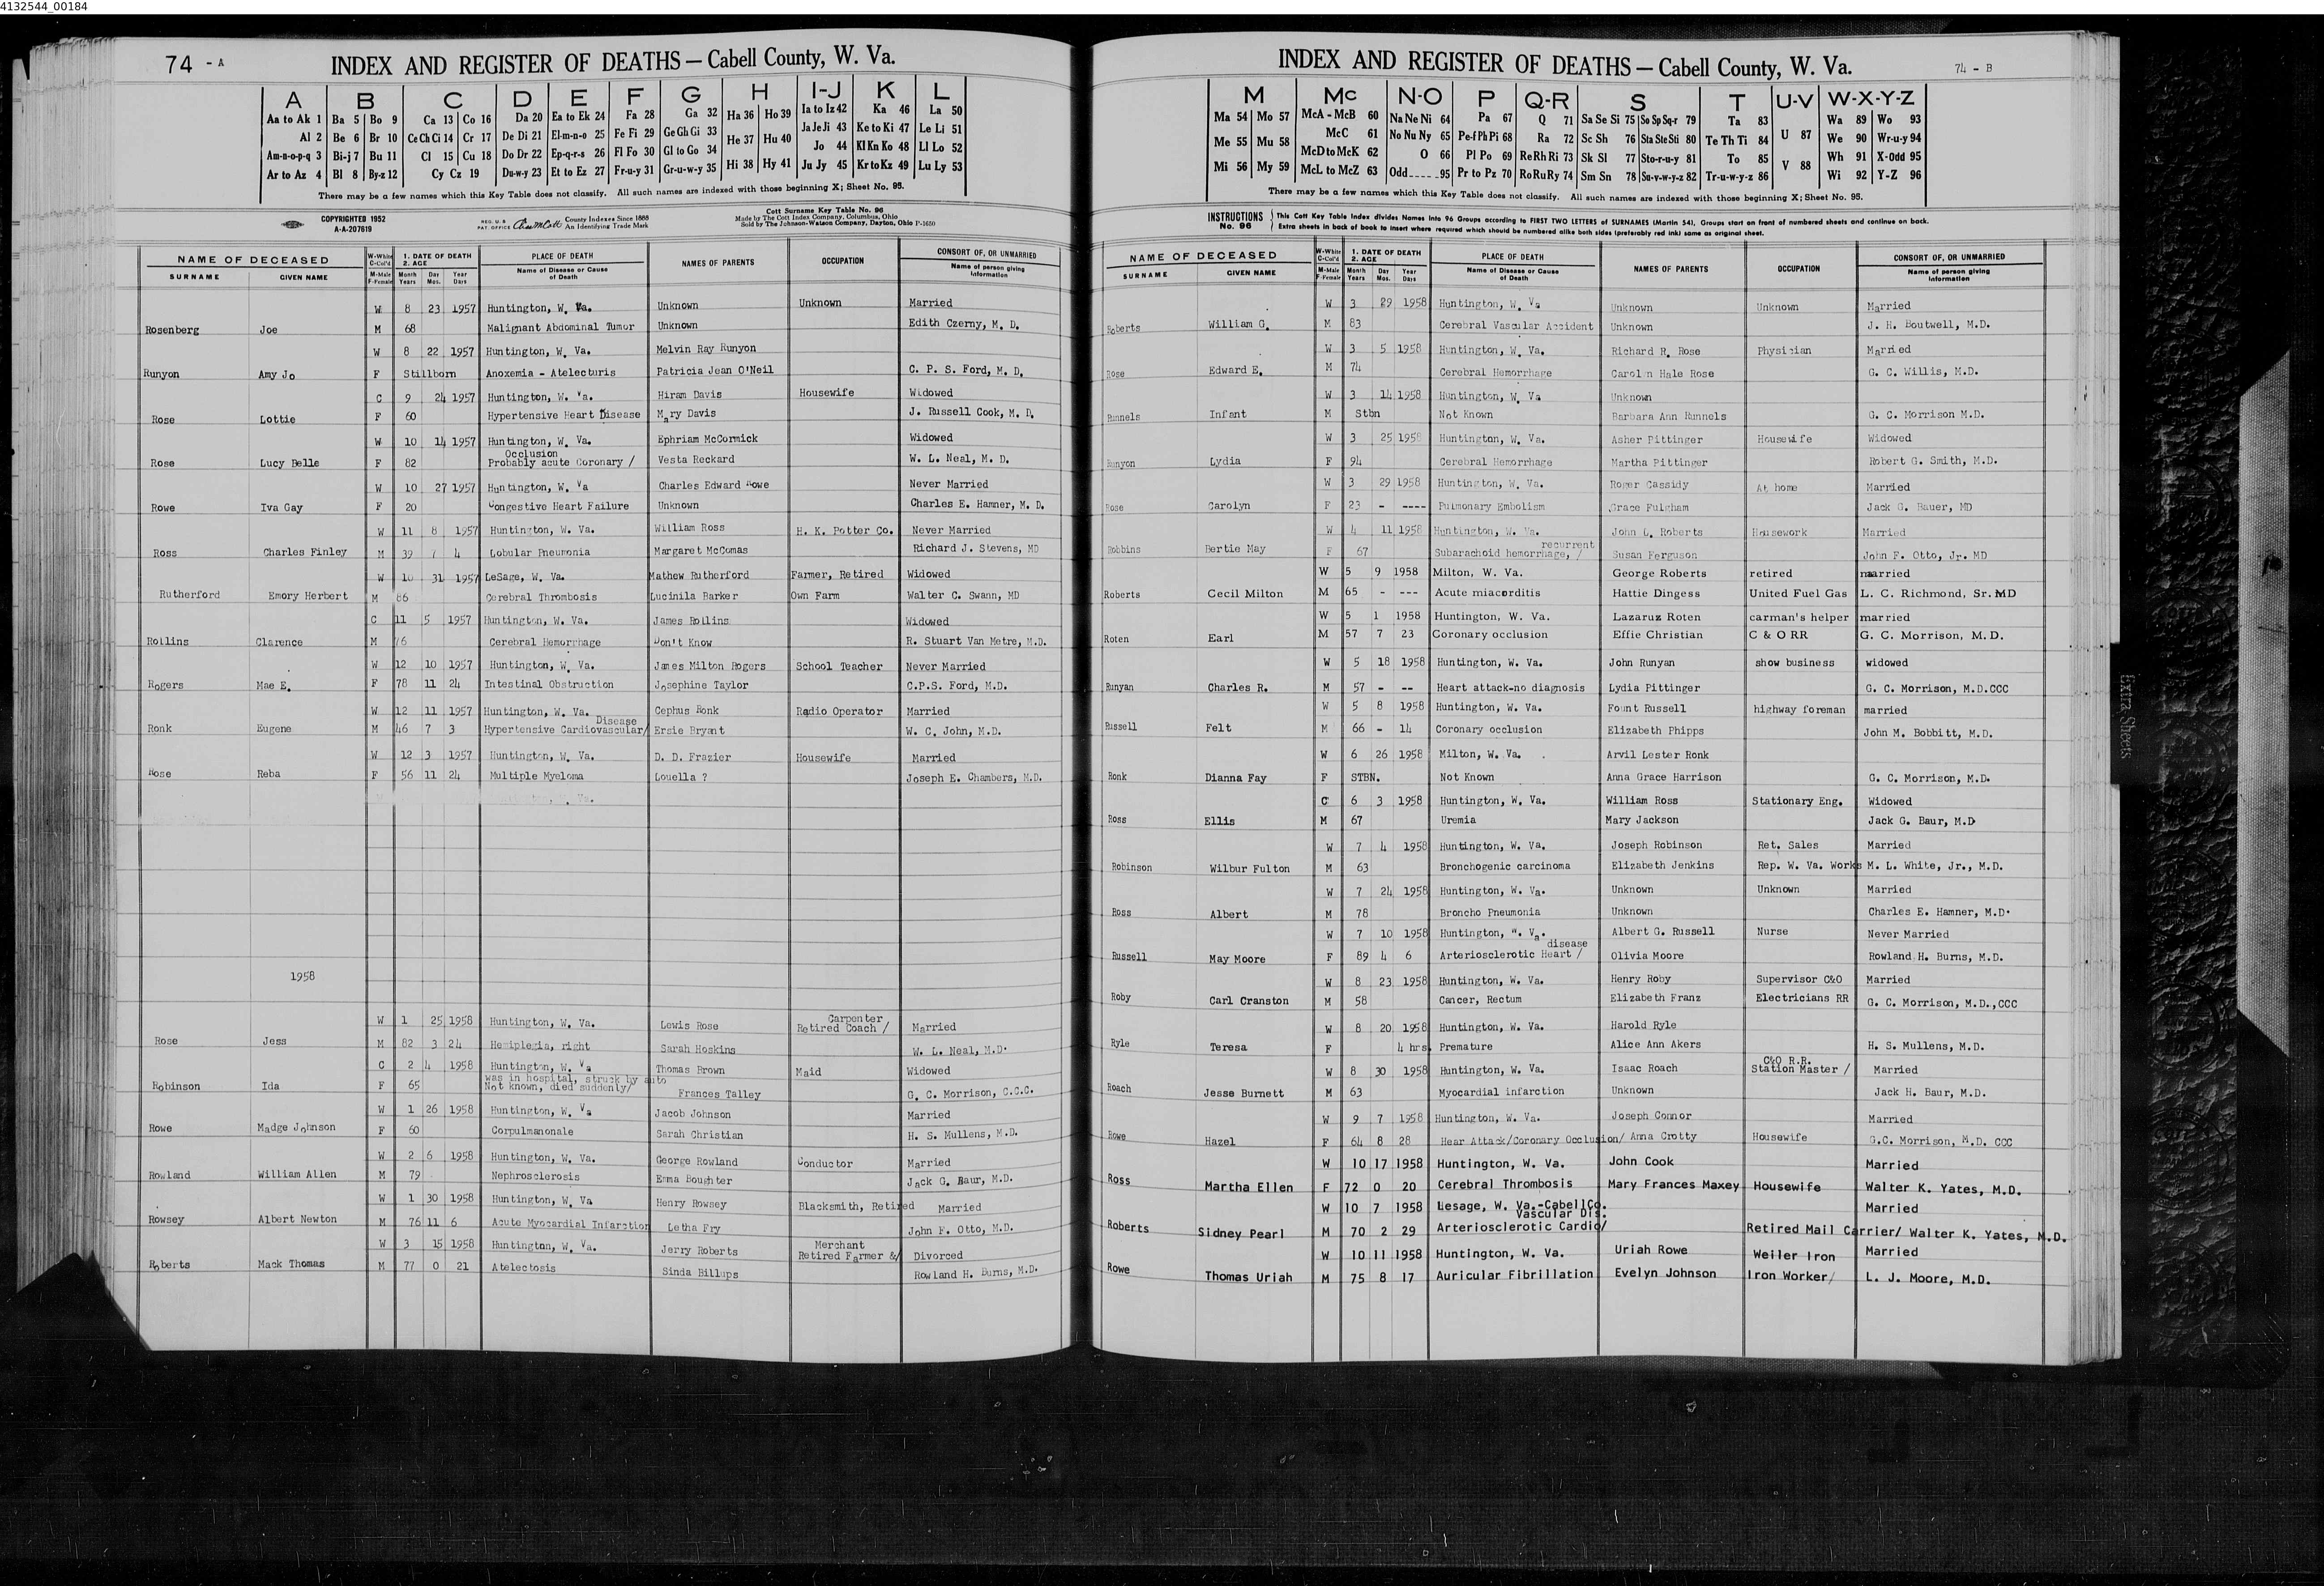 4132544_00184
74 - A
INDEX AND REGISTER OF DEATHS — Cabell County, W. Va.
A B C D E F G H I-J K L
Aa to Ak 1 Ba 5 Bo 9 Ca 13 Co 16 Da 20 Ea to Ek 24 Fa 28 Ga 32 Ha 36 Ho 39 Ia to Iz 42 Ka 46 La 50
Al 2 Be 6 Br 10 Ce Ch Ci 14 Cr 17 De Di 21 El-m-n-o 25 Fe Fi 29 Ge Gh Gi 33 He 37 Hu 40 Ja Je Ji 43 Ke to Ki 47 Le Li 51
Am-n-o-p-q 3 Bi-j 7 Bu 11 Cl 15 Cu 18 Do Dr 22 Ep-q-r-s 26 Fl Fo 30 Gl to Go 34 Hi 38 Hy 41 Jo 44 Kl Kn Ko 48 Ll Lo 52
Ar to Az 4 Bl 8 By-z 12 Cy Cz 19 Du-w-y 23 Et to Ez 27 Fr-u-y 31 Gr-u-w-y 35 Ju Jy 45 Kr to Kz 49 Lu Ly 53
There may be a few names which this Key Table does not classify. All such names are indexed with those beginning X; Sheet No. 95.
COPYRIGHTED 1952
A-A-207619
REG. U. S. PAT. OFFICE County Indexes Since 1888 An Identifying Trade Mark
Cott Surname Key Table No. 96
Made by The Cott Index Company, Columbus, Ohio
Sold by The Johnson-Watson Company, Dayton, Ohio P-1650
NAME OF DECEASED W-White C-Col'd 1. DATE OF DEATH 2. AGE PLACE OF DEATH NAMES OF PARENTS OCCUPATION CONSORT OF, OR UNMARRIED
SURNAME GIVEN NAME M-Male F-Female Month Years Day Mos. Year Days Name of Disease or Cause of Death Name of person giving Information
W 8 23 1957 Huntington, W. Va. Unknown Unknown Married
Rosenberg Joe M 68 Malignant Abdominal Tumor Unknown Edith Czerny, M. D.
W 8 22 1957 Huntington, W. Va. Melvin Ray Runyon
Runyon Amy Jo F Stillborn Anoxemia - Atelecturis Patricia Jean O'Neil C. P. S. Ford, M. D.
C 9 24 1957 Huntington, W. Va. Hiram Davis Housewife Widowed
Rose Lottie F 60 Hypertensive Heart Disease Mary Davis J. Russell Cook, M. D.
W 10 14 1957 Huntington, W. Va. Ephriam McCormick Widowed
Occlusion
Rose Lucy Belle F 82 Probably acute Coronary / Vesta Reckard W. L. Neal, M. D.
W 10 27 1957 Huntington, W. Va Charles Edward Rowe Never Married
Rowe Iva Gay F 20 Congestive Heart Failure Unknown Charles E. Hamner, M. D.
W 11 8 1957 Huntington, W. Va. William Ross H. K. Potter Co. Never Married
Ross Charles Finley M 39 7 4 Lobular Pneumonia Margaret McComas Richard J. Stevens, MD
W 10 31 1957 LeSage, W. Va. Mathew Rutherford Farmer, Retired Widowed
Rutherford Emory Herbert M 86 Cerebral Thrombosis Lucinila Barker Own Farm Walter C. Swann, MD
C 11 5 1957 Huntington, W. Va. James Rollins Widowed
Rollins Clarence M 76 Cerebral Hemorrhage Don't Know R. Stuart Van Metre, M.D.
W 12 10 1957 Huntington, W. Va. James Milton Rogers School Teacher Never Married
Rogers Mae E. F 78 11 24 Intestinal Obstruction Josephine Taylor C.P.S. Ford, M.D.
W 12 11 1957 Huntington, W. Va. Cephus Ronk Radio Operator Married
Disease
Ronk Eugene M 46 7 3 Hypertensive Cardiovascular/ Ersie Bryant W. C. John, M.D.
W 12 3 1957 Huntington, W. Va. D. D. Frazier Housewife Married
Rose Reba F 56 11 24 Multiple Myeloma Louella ? Joseph E. Chambers, M.D.
1958
Carpenter
W 1 25 1958 Huntington, W. Va. Lewis Rose Retired Coach / Married
Rose Jess M 82 3 24 Hemiplegia, right Sarah Hoskins W. L. Neal, M.D.
C 2 4 1958 Huntington, W. Va Thomas Brown Maid Widowed
was in hospital, struck by auto
Robinson Ida F 65 Not known, died suddenly/ Frances Talley G. C. Morrison, C.C.C.
W 1 26 1958 Huntington, W. Va Jacob Johnson Married
Rowe Madge Johnson F 60 Corpulmanonale Sarah Christian H. S. Mullens, M.D.
W 2 6 1958 Huntington, W. Va. George Rowland Conductor Married
Rowland William Allen M 79 Nephrosclerosis Emma Boughter Jack G. Baur, M.D.
W 1 30 1958 Huntington, W. Va Henry Rowsey Blacksmith, Retired Married
Rowsey Albert Newton M 76 11 6 Acute Myocardial Infarction Letha Fry John F. Otto, M.D.
Merchant
W 3 15 1958 Huntington, W. Va. Jerry Roberts Retired Farmer &/ Divorced
Roberts Mack Thomas M 77 0 21 Atelectosis Sinda Billups Rowland H. Burns, M.D.
INDEX AND REGISTER OF DEATHS — Cabell County, W. Va.
74 - B
M Mc N-O P Q-R S T U-V W-X-Y-Z
Ma 54 Mo 57 McA - McB 60 Na Ne Ni 64 Pa 67 Q 71 Sa Se Si 75 So Sp Sq-r 79 Ta 83 U 87 Wa 89 Wo 93
Me 55 Mu 58 McC 61 No Nu Ny 65 Pe-f Ph Pi 68 Ra 72 Sc Sh 76 Sta Ste Sti 80 Te Th Ti 84 We 90 Wr-u-y 94
Mi 56 My 59 McD to McK 62 O 66 Pl Po 69 Re Rh Ri 73 Sk Sl 77 Sto-r-u-y 81 To 85 V 88 Wh 91 X-Odd 95
McL to McZ 63 Odd 95 Pr to Pz 70 Ro Ru Ry 74 Sm Sn 78 Su-v-w-y-z 82 Tr-u-w-y-z 86 Wi 92 Y-Z 96
There may be a few names which this Key Table does not classify. All such names are indexed with those beginning X; Sheet No. 95.
INSTRUCTIONS No. 96 This Cott Key Table Index divides Names into 96 Groups according to FIRST TWO LETTERS of SURNAMES (Martin 54). Groups start on front of numbered sheets and continue on back.
Extra sheets in back of book to insert where required which should be numbered alike both sides (preferably red ink) same as original sheet.
NAME OF DECEASED W-White C-Col'd 1. DATE OF DEATH 2. AGE PLACE OF DEATH NAMES OF PARENTS OCCUPATION CONSORT OF, OR UNMARRIED
SURNAME GIVEN NAME M-Male F-Female Month Years Day Mos. Year Days Name of Disease or Cause of Death Name of person giving Information
W 3 29 1958 Huntington, W. Va Unknown Unknown Married
Roberts William G. M 83 Cerebral Vascular Accident Unknown J. H. Boutwell, M.D.
W 3 5 1958 Huntington, W. Va. Richard R. Rose Physician Married
Rose Edward E. M 74 Cerebral Hemorrhage Carolyn Hale Rose G. C. Willis, M.D.
W 3 14 1958 Huntington, W. Va Unknown
Runnels Infant M Stbn Not Known Barbara Ann Runnels G. C. Morrison M.D.
W 3 25 1958 Huntington, W. Va. Asher Pittinger Housewife Widowed
Runyon Lydia F 94 Cerebral Hemorrhage Martha Pittinger Robert G. Smith, M.D.
W 3 29 1958 Huntington, W. Va. Roger Cassidy At home Married
Rose Carolyn F 23 - ---- Pulmonary Embolism Grace Fulgham Jack G. Bauer, MD
W 4 11 1958 Huntington, W. Va. John L. Roberts Housework Married
recurrent
Robbins Bertie May F 67 Subarachoid hemorrhage, / Susan Ferguson John F. Otto, Jr. MD
W 5 9 1958 Milton, W. Va. George Roberts retired married
Roberts Cecil Milton M 65 - --- Acute miacorditis Hattie Dingess United Fuel Gas L. C. Richmond, Sr. MD
W 5 1 1958 Huntington, W. Va. Lazaruz Roten carman's helper married
Roten Earl M 57 7 23 Coronary occlusion Effie Christian C & O RR G. C. Morrison, M. D.
W 5 18 1958 Huntington, W. Va. John Runyan show business widowed
Runyan Charles R. M 57 - -- Heart attack-no diagnosis Lydia Pittinger G. C. Morrison, M.D.CCC
W 5 8 1958 Huntington, W. Va. Fount Russell highway foreman married
Russell Felt M 66 - 14 Coronary occlusion Elizabeth Phipps John M. Bobbitt, M.D.
W 6 26 1958 Milton, W. Va. Arvil Lester Ronk
Ronk Dianna Fay F STBN. Not Known Anna Grace Harrison G. C. Morrison, M.D.
C 6 3 1958 Huntington, W. Va. William Ross Stationary Eng. Widowed
Ross Ellis M 67 Uremia Mary Jackson Jack G. Baur, M.D
W 7 4 1958 Huntington, W. Va. Joseph Robinson Ret. Sales Married
Robinson Wilbur Fulton M 63 Bronchogenic carcinoma Elizabeth Jenkins Rep. W. Va. Works M. L. White, Jr., M.D.
W 7 24 1958 Huntington, W. Va. Unknown Unknown Married
Ross Albert M 78 Broncho Pneumonia Unknown Charles E. Hamner, M.D.
W 7 10 1958 Huntington, W. Va. Albert G. Russell Nurse Never Married
disease
Russell May Moore F 89 4 6 Arteriosclerotic Heart / Olivia Moore Rowland H. Burns, M.D.
W 8 23 1958 Huntington, W. Va. Henry Roby Supervisor C&O Married
Roby Carl Cranston M 58 Cancer, Rectum Elizabeth Franz Electricians RR G. C. Morrison, M.D.,CCC
W 8 20 1958 Huntington, W. Va. Harold Ryle
Ryle Teresa F 4 hrs. Premature Alice Ann Akers H. S. Mullens, M.D.
C&O R.R.
W 8 30 1958 Huntington, W. Va. Isaac Roach Station Master / Married
Roach Jesse Burnett M 63 Myocardial infarction Unknown Jack H. Baur, M.D.
W 9 7 1958 Huntington, W. Va. Joseph Connor Married
Rowe Hazel F 64 8 28 Hear Attack/Coronary Occlusion/ Anna Crotty Housewife G.C. Morrison, M.D. CCC
W 10 17 1958 Huntington, W. Va. John Cook Married
Ross Martha Ellen F 72 0 20 Cerebral Thrombosis Mary Frances Maxey Housewife Walter K. Yates, M.D.
W 10 7 1958 Lesage, W. Va.-Cabell Co. Married
Vascular Dis.
Roberts Sidney Pearl M 70 2 29 Arteriosclerotic Cardio/ Retired Mail Carrier/ Walter K. Yates, M.D.
W 10 11 1958 Huntington, W. Va. Uriah Rowe Weiler Iron Married
Rowe Thomas Uriah M 75 8 17 Auricular Fibrillation Evelyn Johnson Iron Worker/ L. J. Moore, M.D.
Extra Sheets